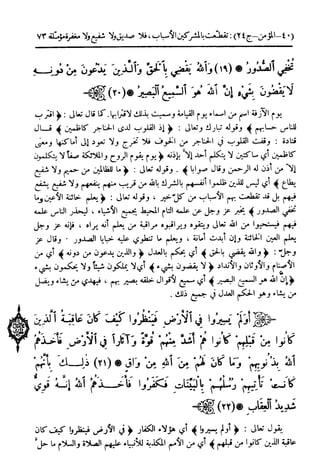 (٤٠ - المؤمن - ج٢٤) : تقطعت بالمشركين الأسباب، فلا صديق ولا شفيع ولا مغفرة مؤملة ٧٣
تُخْفِي الصُّدُورُ * (١٩) وَاللَّهُ يَقْضِي بِالْحَقِّ وَالَّذِينَ يَدْعُونَ مِنْ دُونِهِ
لَا يَقْضُونَ بِشَيْءٍ إِنَّ اللَّهَ هُوَ السَّمِيعُ الْبَصِيرُ * (٢٠)
يوم الآزفة اسم من أسماء يوم القيامة وسميت بذلك لاقترابها. كما قال تعالى : ﴿ اقترب
للناس حسابهم ﴾ وقوله تبارك وتعالى : ﴿ إذ القلوب لدى الحناجر كاظمين ﴾ قــال
قتادة : وقفت القلوب في الحناجر من الخوف فلا تخرج ولا تعود إلى أماكنها ومعنى
كاظمين أي ساكتين لا يتكلم أحد إلا بإذنه ﴿ يوم يقوم الروح والملائكة صفاً لا يتكلمون
إلا من أذن له الرحمن وقال صوابا ﴾ . وقوله تعالى : ﴿ ما للظالمين من حميم ولا شفيع
يطاع ﴾ أي ليس للذين ظلموا أنفسهم بالشرك بالله من قريب منهم ينفعهم ولا شفيع يشفع
فيهم بل قد تقطعت بهم الأسباب من كل خير ، وقوله تعالى : ﴿ يعلم خائنة الأعين وما
تخفي الصدور ﴾ يخبر عز وجل عن علمه التام المحيط بجميع الأشياء ، ليحذر الناس علمه
فيهم فيستحيوا من الله تعالى ويتقوه ويراقبوه مراقبة من يعلم أنه يراه ، فإنه عز وجل
يعلم العين الخائنة وإن أبدت أمانة ، ويعلم ما تنطوي عليه خبايا الصدور . وقال عز
وجل : ﴿ والله يقضي بالحق ﴾ أي يحكم بالعدل ﴿ والذين يدعون من دونه ﴾ أي من
الأصنام والأوثان والأنداد ﴿ لا يقضون بشيء ﴾ أي لا يملكون شيئاً ولا يحكمون بشيء
﴿ إن الله هو السميع البصير ﴾ أي سميع لأقوال خلقه بصير بهم ، فيهدي من يشاء ويضل
من يشاء وهو الحكم العدل في جميع ذلك .
* أَوَلَمْ يَسِيرُوا فِي الْأَرْضِ فَيَنْظُرُوا كَيْفَ كَانَ عَاقِبَةُ الَّذِينَ
كَانُوا مِنْ قَبْلِهِمْ كَانُوا هُمْ أَشَدَّ مِنْهُمْ قُوَّةً وَآثَارًا فِي الْأَرْضِ فَأَخَذَهُمُ
اللَّهُ بِذُنُوبِهِمْ وَمَا كَانَ لَهُمْ مِنَ اللَّهِ مِنْ وَاقٍ * (٢١) ذَلِكَ بِأَنَّهُمْ
كَانَتْ تَأْتِيهِمْ رُسُلُهُمْ بِالْبَيِّنَاتِ فَكَفَرُوا فَأَخَذَهُمُ اللَّهُ إِنَّهُ قَوِيٌّ
شَدِيدُ الْعِقَابِ * (٢٢)
يقول تعالى : ﴿ أولم يسيروا ﴾ أي هؤلاء الكفار ﴿ في الأرض فينظروا كيف كان
عاقبة الذين كانوا من قبلهم ﴾ أي من الأمم المكذبة للأنبياء عليهم الصلاة والسلام ما حل